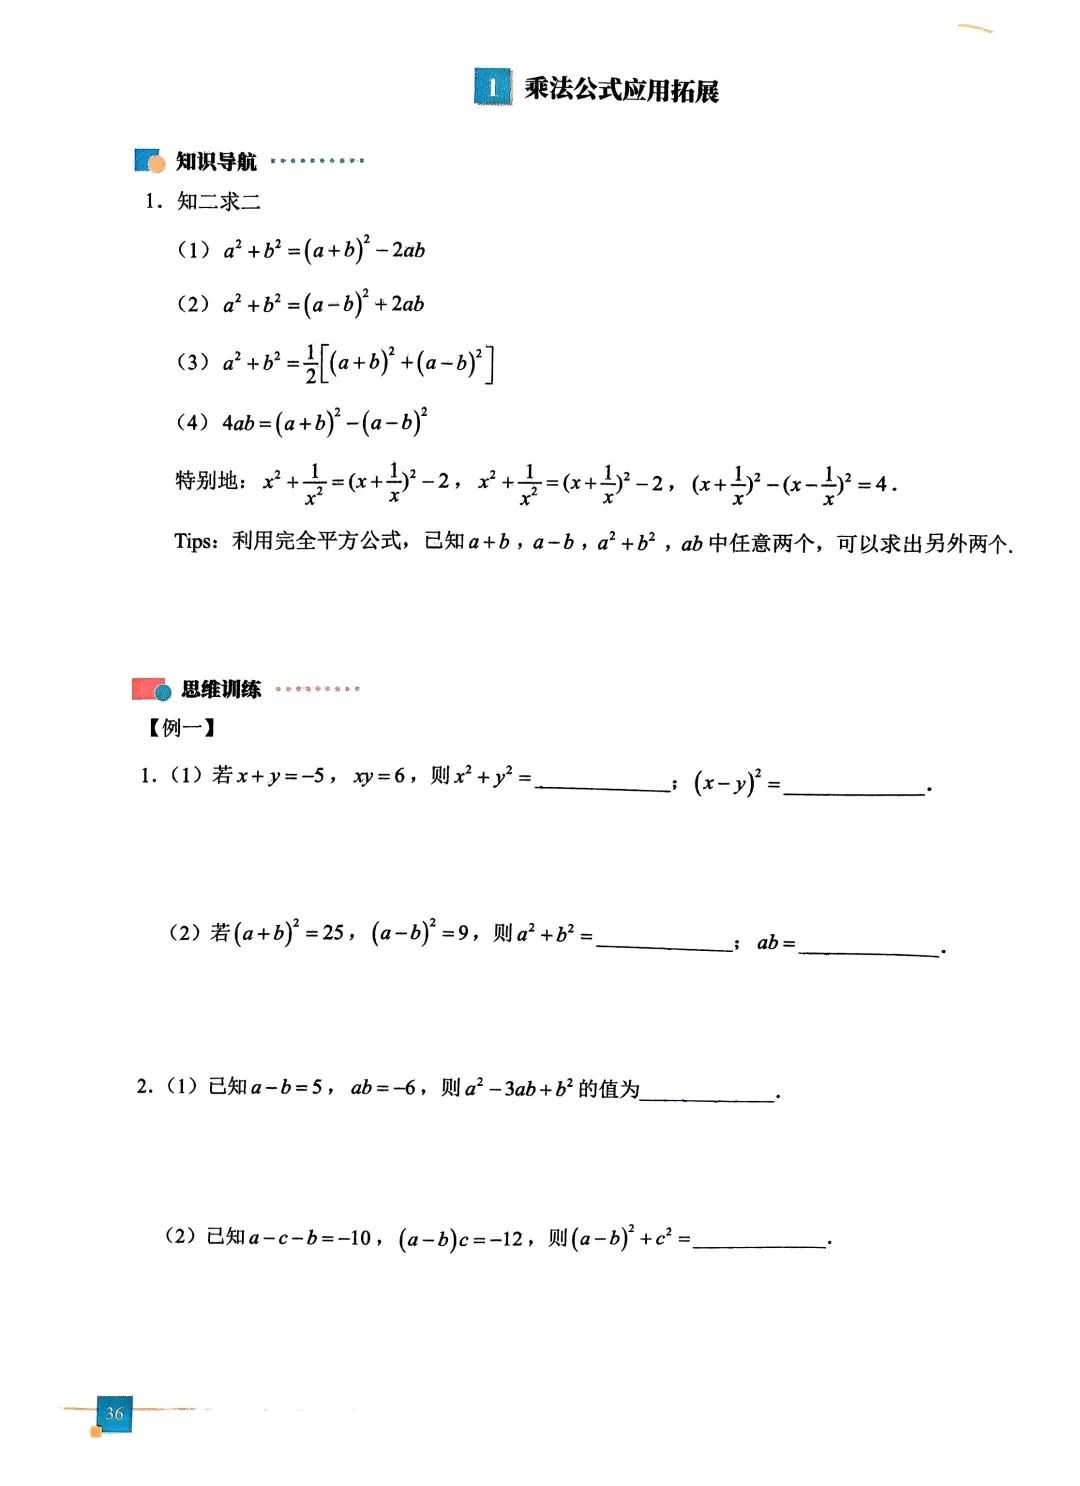 1 乘法公式应用拓展
知识导航
1. 知二求二
(1) a² + b² = (a+b)² − 2ab
(2) a² + b² = (a−b)² + 2ab
(3) a² + b² = 1/2[(a+b)² + (a−b)²]
(4) 4ab = (a+b)² − (a−b)²
特别地：x² + 1/x² = (x + 1/x)² − 2，x² + 1/x² = (x + 1/x)² − 2，(x + 1/x)² − (x − 1/x)² = 4．
Tips：利用完全平方公式，已知 a+b，a−b，a² + b²，ab 中任意两个，可以求出另外两个.
思维训练
【例一】
1.（1）若 x + y = −5，xy = 6，则 x² + y² = ____________；(x − y)² = ____________．
（2）若 (a+b)² = 25，(a−b)² = 9，则 a² + b² = ____________；ab = ____________．
2.（1）已知 a − b = 5，ab = −6，则 a² − 3ab + b² 的值为____________．
（2）已知 a − c − b = −10，(a−b)c = −12，则 (a−b)² + c² = ____________．
36